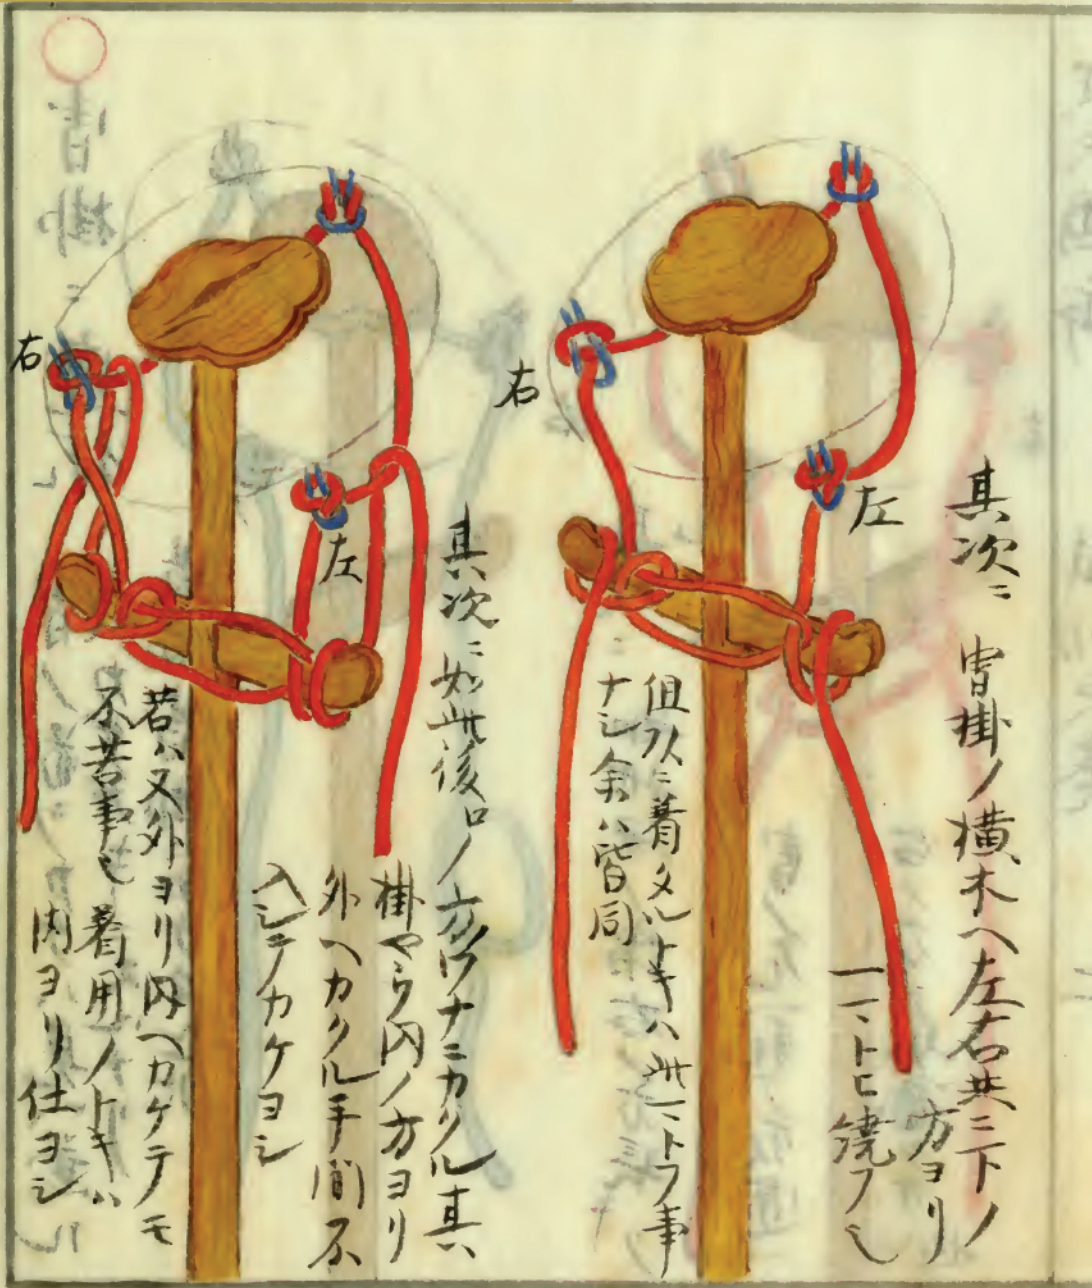 其次ニ 冑掛ノ横木ヘ左右共ニ下ノ
方ヨリ
一マトヒ繞フ也
左
右
但人ニ着タルトキハ此一トフ事
ナシ余ハ皆同
其次ニ如此後ロノ方
ワナニカクル其
掛ヤウ内ノ方ヨリ
外ヘカクル手間不
入シテカケヨシ
左
右
若ハ又外ヨリ内ヘカケテモ
不苦事也 着用ノトキハ
内ヨリ仕ヨシ